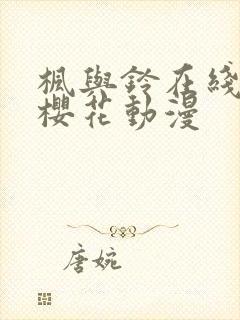 楓與鈴在綫
櫻花動漫
唐婉